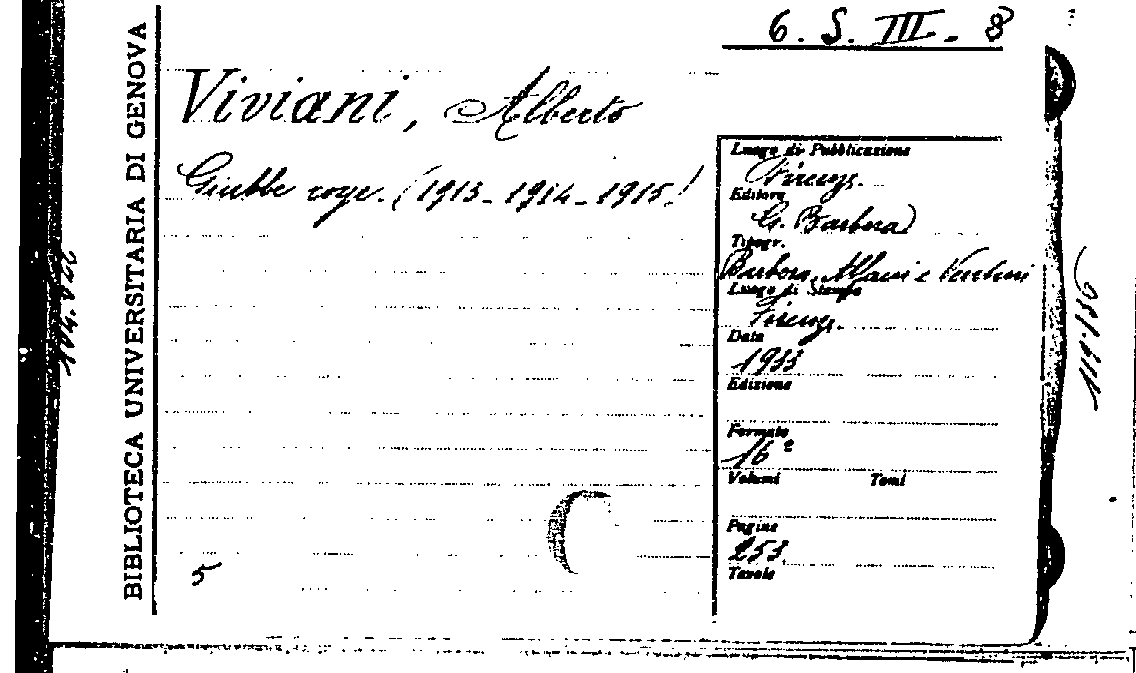 6. S. III. - 8
BIBLIOTECA UNIVERSITARIA DI GENOVA
Viviani, Alberto
Giubbe rosse. (1913-1914-1915)
5
Luogo di Pubblicazione
Firenze.
Editore
G. Barbera
Tipogr.
Barbera, Alfani e Venturi
Luogo di Stampa
Firenze.
Data
1933
Edizione
Formato
16º
Volumi Tomi
Pagine
253.
Tavole